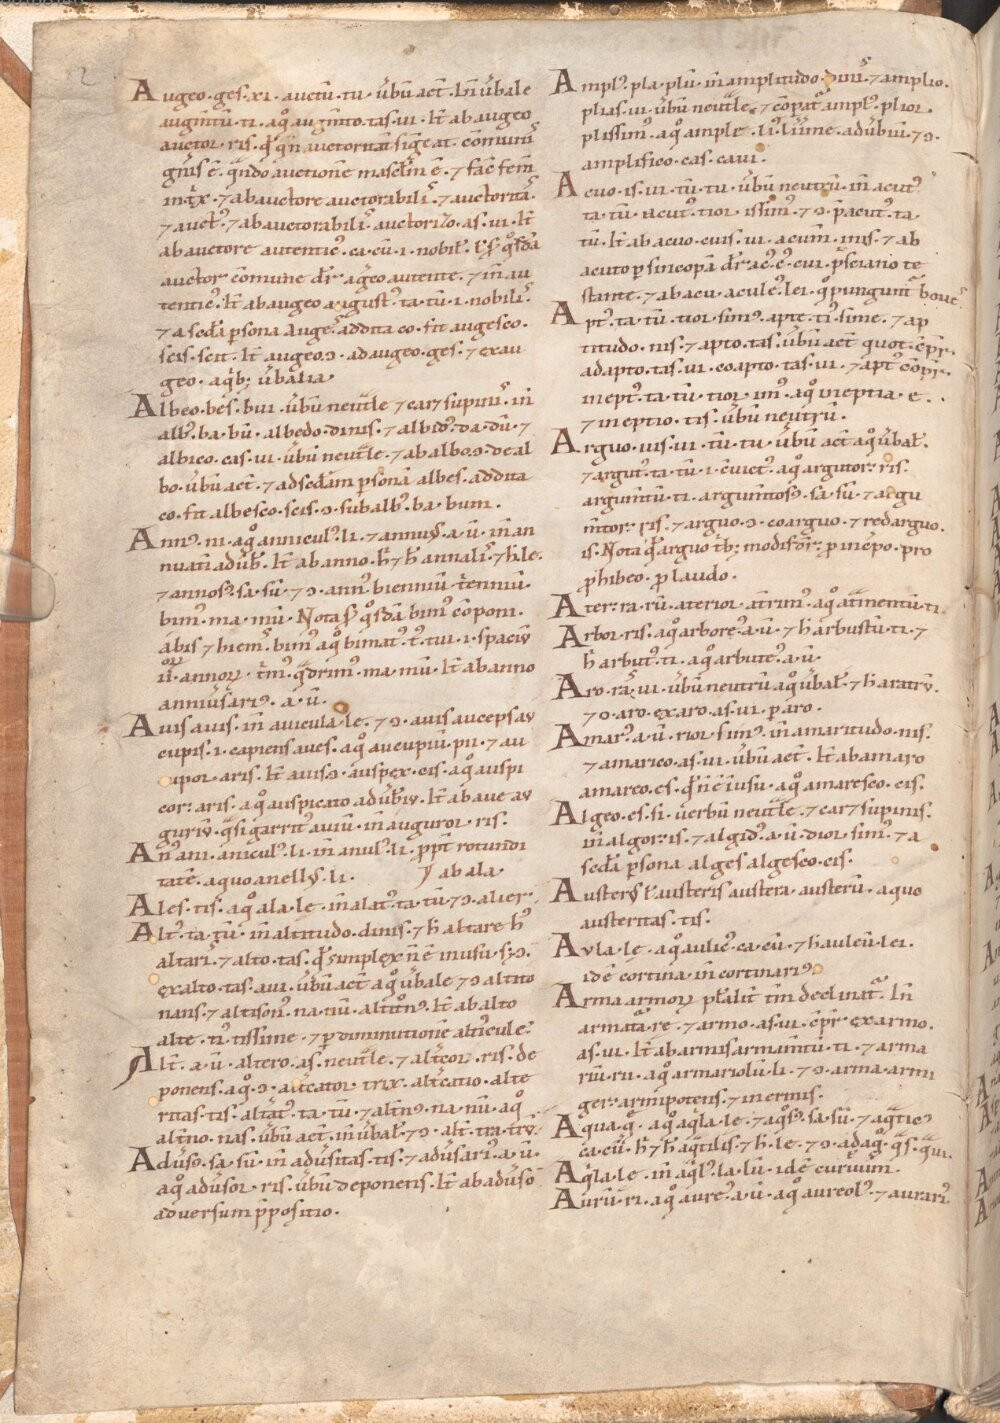 Augeo·ges·xi·auctū·tu·ūbū act̄·Iñ ūbale
augm̄tū·ti·aq̊ augm̄to·tas·ui·It̄ ab augeo
auctor·ris·
gn̄is ē·
in t̄x·⁊ ab auctore auctorabilis·⁊ auctoritas·
⁊ auctꝰ·⁊ ab auctorabilis auctorizo·as·ui·It̄
ab auctore autenticꝰ·ca·cū·i·nobilis·
auctor cōmune dr̄ a greo autente·⁊ in au
tenticꝰ·It̄ ab augeo augustꝰ·ta·tū·i·nobilis·
⁊ a scd̄a ꝑsona auges addita co·fit augesco·
scis·scit·It̄ augeo·ↄ·adaugeo·ges·⁊ exau
geo·aq̄b; ūbalia
Albeo·bes·bui·ūbū neut̄le ⁊ caret supinis·iñ
albꝰ·ba·bū·albedo·dinis·⁊ albidꝰ·da·dū·⁊
albico·cas·ui·ūbū neut̄le·⁊ ab albo·ↄ·deal
bo·ūbū act̄·⁊ ad scd̄am ꝑsonā albes·addita
co·fit albesco·scis·ↄ·subalbꝰ·ba·bum·
Annꝰ·ni·aq̊ anniculꝰ·li·⁊ annuꝰ·a·ū·iñ an
nuati adūb̄·It̄ ab anno·h̄ ⁊ h̄ annalis·⁊ h̄·le·
⁊ annosꝰ·sa·sū·⁊ ↄ·annꝰ bienniū·t̄enniū·
bimꝰ·ma·mū·Nota bimꝰ cōponi·
abis ⁊ hiems·bimꝰ aq̊ bimatꝰ·tꝰ·tui·i·spaciū
ii·annoꝝ·t̄mꝰ·q̄drimꝰ·ma·mū·It̄ ab anno
anniūsariꝰ·a·ū·
Auis auis·iñ auicula·le·⁊ ↄ·auis auceps au
cupis·i·capiens aues·aq̊ aucupiū·pii·⁊ au
cupor·aris·It̄ auis ↄ·auspex·cis·aq̊ auspi
cor·aris·aq̊ auspicato adūbiū·It̄ ab aue au
guriū·q̄si garritꝰ auiū·iñ auguror·ris·
Anꝰ·ani·aniculꝰ·li·iñ anulꝰ·li·ꝓpt̄ rotundi
tatē·a quo anellꝰ·li· ⁊ ab ala·
Ales·tis·aq̊ ala·le·iñ alatꝰ·ta·tū·⁊ ↄ·aliger·
Altꝰ·ta·tū·iñ altitudo·dinis·⁊ h̄ altare·hꝰ
altaris·⁊ alto·tas·q̄ simplex n̄ ē in usu·s;ↄ·
exalto·tas·aui·ūbū act̄ aq̊ ūbale·⁊ ↄ altito
nans·⁊ altisonꝰ·na·nū·altitonꝰ·It̄ ab alto
alte·tiꝰ·tissime·⁊ ꝑ diminutionē alticulꝰ
Alt̄·a·ū·altero·as·neut̄le·⁊ alt̄cor·ris·de
ponens·aq̊·ↄ·alt̄cator·trix·alt̄catio·alte
ritas·tis·alt̄atꝰ·ta·tū·⁊ alt̄nꝰ·na·nū·aq̊
alt̄no·nas·ūbū act̄·iñ ūbal̄·⁊ ↄ·alt̄·tra·trū·
Adūsꝰ·sa·sū·iñ adūsitas·tis·⁊ adūsariꝰ·a·ū·
aq̊ adūsor·ris·ūbū deponens·It̄ ab adūso
aduersum p̄positio·
Amplꝰ·pla·plū·iñ amplitudo·dinis·⁊ amplio·
plias·ui·ūbū neut̄le·⁊ cōpat̄ amplꝰ·plior·
plissimꝰ·aq̊ ample· adūbiū·⁊ ↄ·
amplifico·cas·caui·
Acuo·is·ui·tū·tu·ūbū neutrū·iñ acutꝰ
ta·tū·acutꝰ·tior·issimꝰ·⁊ ↄ·p̄acutꝰ·ta
tū·It̄ ab acuo·cuis·ui·acum̄·inis·⁊ ab
acuto ꝑ sincopā dr̄ acꝰ·cꝰ·cui·p̄sciano te
stante·⁊ ab acu·aculeꝰ·lei·q̊ pungunt̄ boues
Aptꝰ·ta·tū·tior·simꝰ·apte·tiꝰ·sime·⁊ ap
titudo·nis·⁊ apto·tas·ūbū act̄ quot·
adapto·tas·ui·coapto·tas·ui·⁊ aptꝰ
ineptꝰ·ta·tū·tior·imꝰ·aq̊ ineptia·e··
⁊ ineptio·tis·ūbū neutrū·
Arguo·uis·ui·tū·tu·ūbū act̄ aq̊ ūbal̄·
⁊ argutꝰ·ta·tū·i·ꝯuictꝰ·aq̊ argutor·ris·
argum̄tū·ti·argum̄tosꝰ·sa·sū·⁊ argu
m̄tor·ris·⁊ arguo·ↄ·coarguo·⁊ redarguo·
is·Nota q̄ arguo t̄b; modis for̄·ꝓ inc̄po·pro
ꝓhibeo·ꝓ laudo·
Ater·ra·rū·aterior·at̄rimꝰ·aq̊ at̄mentū·ti·
Arbor·ris·aq̊ arboreꝰ·a·ū·⁊ h̄ arbustū·ti·⁊
h̄ arbutꝰ·ti·aq̊ arbuteꝰ·a·ū·
Aro·ras·ui·ūbū neutrū aq̊ ūbal̄·⁊ h̄ aratrū·
⁊ ↄ·aro·exaro·as·ui·ꝑaro·
Amarꝰ·a·ū·rior·simꝰ·iñ amaritudo·nis·
⁊ amarico·as·ui·ūbū act̄·It̄ ab amaro
amareo·es·q̄ n̄ ē ī usu·aq̊ amaresco·cis·
Algeo·es·si·uerbū neut̄le·⁊ caret supinis·
iñ algor·is·⁊ algidꝰ·a·ū·dior·simꝰ·⁊ a
scd̄a ꝑsona alges algesco·cis·
Austerꝰ ł austeris austera·austerū·a quo
austeritas·tis·
Aula·le·aq̊ aulicꝰ·ca·cū·⁊ h̄ auleū·lei·
idē cortina·iñ cortinariꝰ·
Arma armoꝝ pl̄alit̄ tm̄ declinat̄·Iñ
armat̄a·re·⁊ armo·as·ui·c̄pr̄ exarmo·
as·ui·It̄ ab armis armam̄tū·ti·⁊ arma
riū·rii·aq̊ armariolū·li·⁊ ↄ·arma·armi
ger·armipotens·⁊ inermis·
Aqua·q̄·aq̊ aq̄la·le·⁊ aq̊sꝰ·sa·sū·⁊ aq̄ticꝰ
ca·cū·h̄ ⁊ h̄ aq̄tilis·⁊ h̄·le·⁊ ↄ·adaq̊·q̄s·q̄ui·
Aq̄la·le·iñ aq̄lꝰ·la·lū·idē curuum·
Aurū·ri·aq̊ aureꝰ·a·ū·aq̊ aureolꝰ·⁊ aurariꝰ